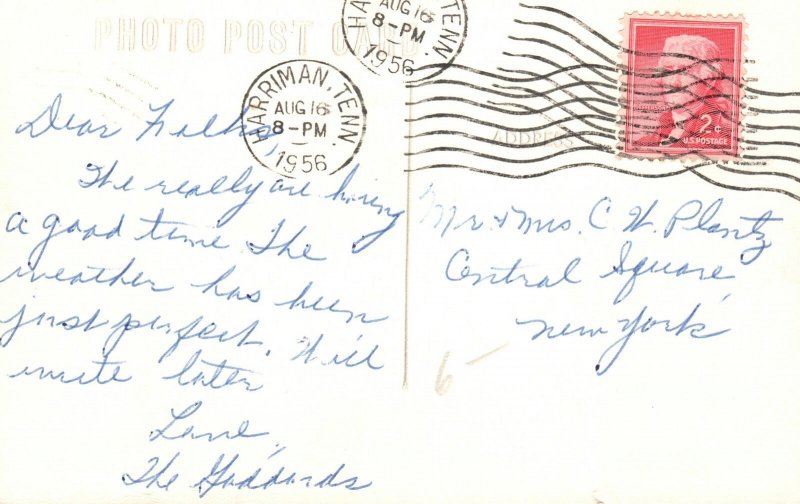 PHOTO POST CARD
HARRIMAN, TENN.
AUG 16
8-PM
1956
HARRIMAN, TENN.
AUG 16
8-PM
1956
2¢
U.S. POSTAGE
ADDRESS
Dear Folks,
The really are having
a good time. The
weather has been
just perfect. Will
write later
Love,
The Goddards
Mr. & Mrs. C. W. Plantz
Central Square
New York
6-